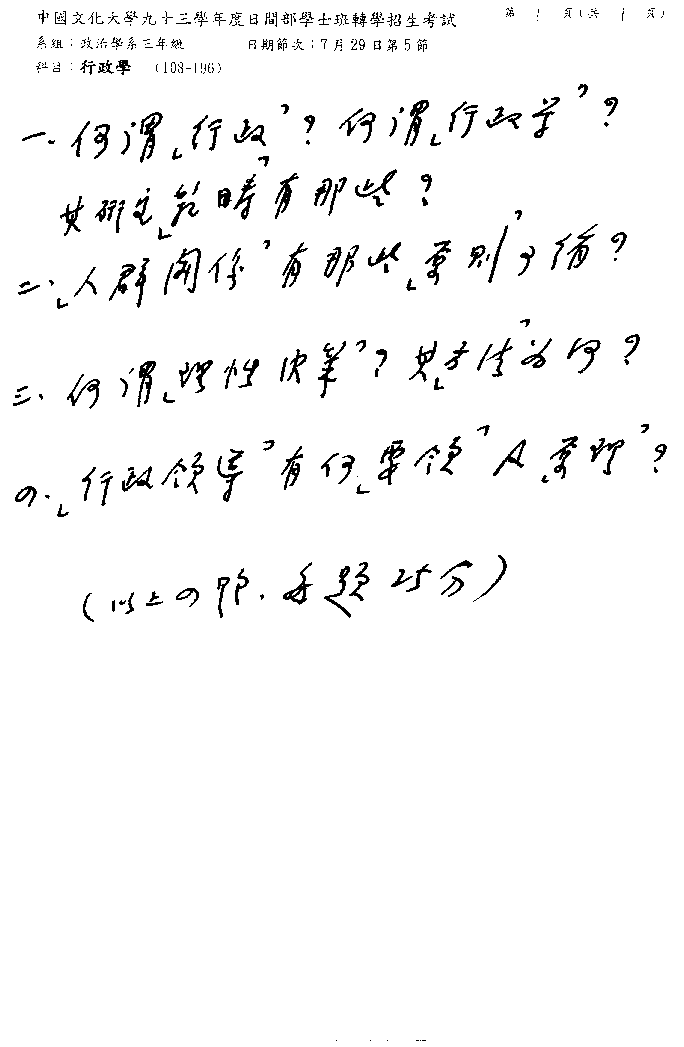 中國文化大學九十三學年度日間部學士班轉學招生考試 第 1 頁(共 1 頁)
系組：政治學系三年級 日期節次：7月29日第5節
科目：行政學 (108-196)
一、何謂「行政」？何謂「行政学」？
其研究「範疇」有那些？
二、「人群関係」有那些「原則」可循？
三、何謂「理性決策」？其「方法」为何？
四、「行政領導」有何「要領」及「原理」？
(以上四題，每題25分)